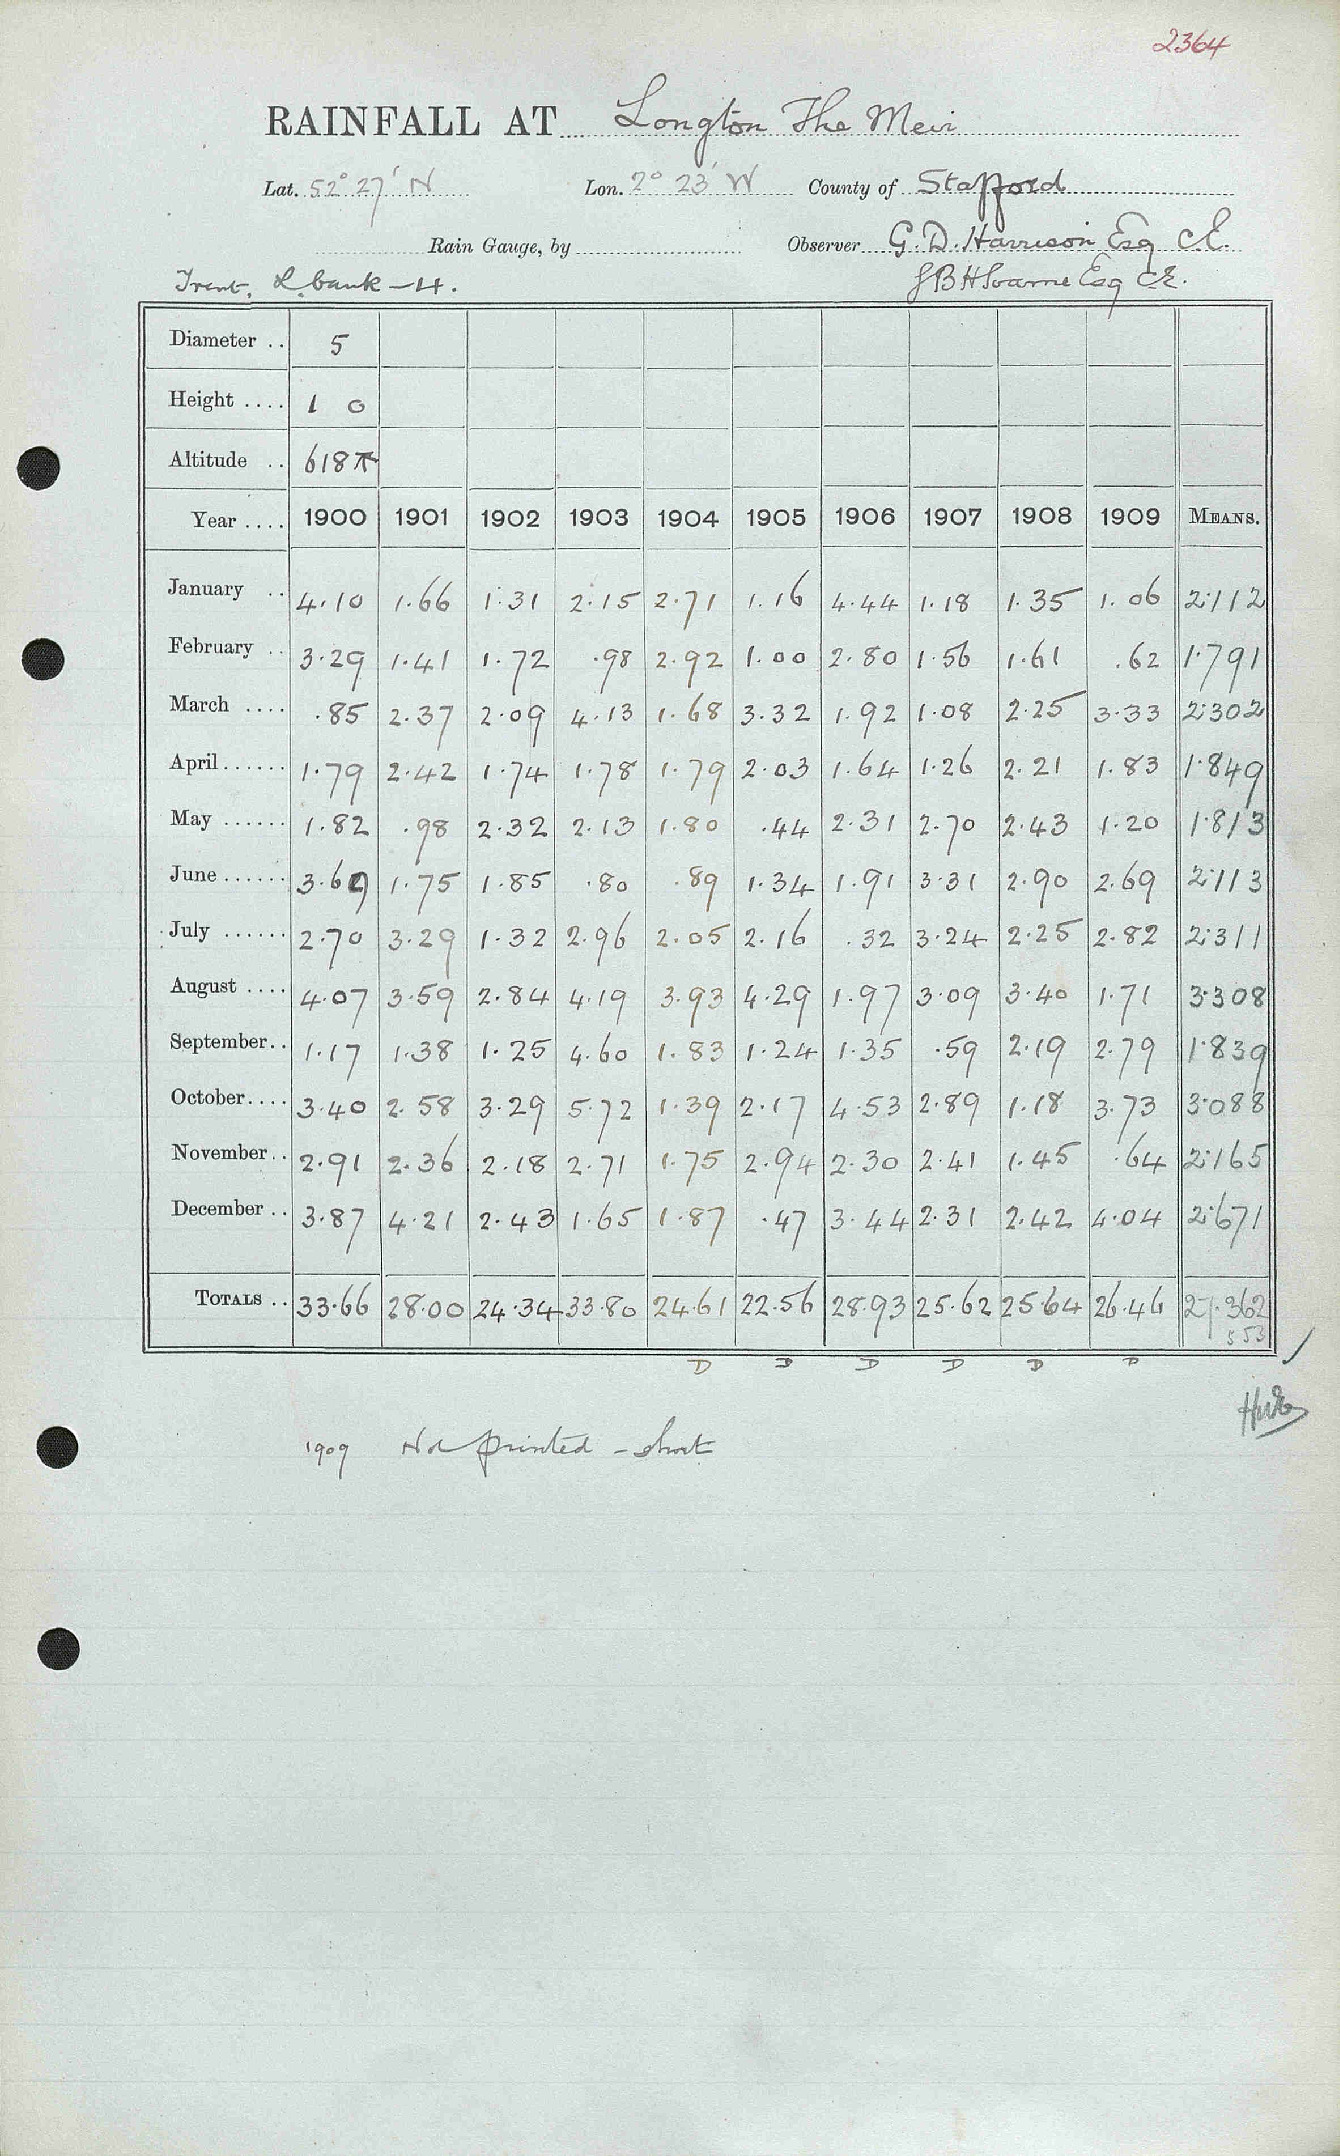 2364
RAINFALL AT Longton The Meir
Lat. 52° 27' N Lon. 2° 23' W County of Stafford
Rain Gauge, by Observer G. D. Harrison Esq C.E.
Trent, L. bank - H. Esq C.E.
Diameter .. 5
Height .... 1 0
Altitude .. 618
Year .... 1900 1901 1902 1903 1904 1905 1906 1907 1908 1909 MEANS.
January .. 4.10 1.66 1.31 2.15 2.71 1.16 4.44 1.18 1.35 1.06 2.112
February .. 3.29 1.41 1.72 .98 2.92 1.00 2.80 1.56 1.61 .62 1.791
March .... .85 2.37 2.09 4.13 1.68 3.32 1.92 1.08 2.25 3.33 2.302
April ...... 1.79 2.42 1.74 1.78 1.79 2.03 1.64 1.26 2.21 1.83 1.849
May ...... 1.82 .98 2.32 2.13 1.80 .44 2.31 2.70 2.43 1.20 1.813
June ...... 3.69 1.75 1.85 .80 .89 1.34 1.91 3.31 2.90 2.69 2.113
July ...... 2.70 3.29 1.32 2.96 2.05 2.16 .32 3.24 2.25 2.82 2.311
August .... 4.07 3.59 2.84 4.19 3.93 4.29 1.97 3.09 3.40 1.71 3.308
September .. 1.17 1.38 1.25 4.60 1.83 1.24 1.35 .59 2.19 2.79 1.839
October .... 3.40 2.58 3.29 5.72 1.39 2.17 4.53 2.89 1.18 3.73 3.088
November .. 2.91 2.36 2.18 2.71 1.75 2.94 2.30 2.41 1.45 .64 2.165
December .. 3.87 4.21 2.43 1.65 1.87 .47 3.44 2.31 2.42 4.04 2.671
TOTALS .. 33.66 28.00 24.34 33.80 24.61 22.56 28.93 25.62 25.64 26.46 27.362
553
D D D D D D
1909 Not printed - short